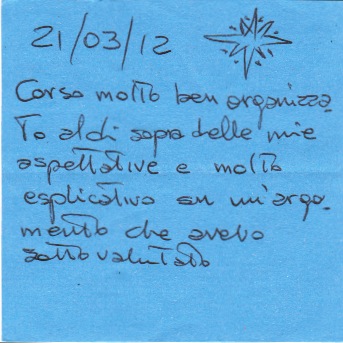 21/03/12
Corso molto ben organizza-
to al di sopra delle mie
aspettative e molto
esplicativo su un'argo-
mento che avevo
sottovalutato